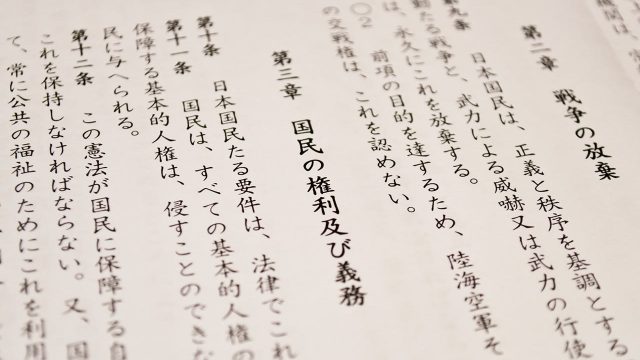 機関は、
第二章　戦争の放棄
第九条　日本国民は、正義と秩序を基調とする
動たる戦争と、武力による威嚇又は武力の行使
は、永久にこれを放棄する。
〇2　前項の目的を達するため、陸海空軍そ
の交戦権は、これを認めない。
第三章　国民の権利及び義務
第十条　日本国民たる要件は、法律でこれ
第十一条　国民は、すべての基本的人権の
保障する基本的人権は、侵すことのできな
民に与へられる。
第十二条　この憲法が国民に保障する自
これを保持しなければならない。又、国
て、常に公共の福祉のためにこれを利用